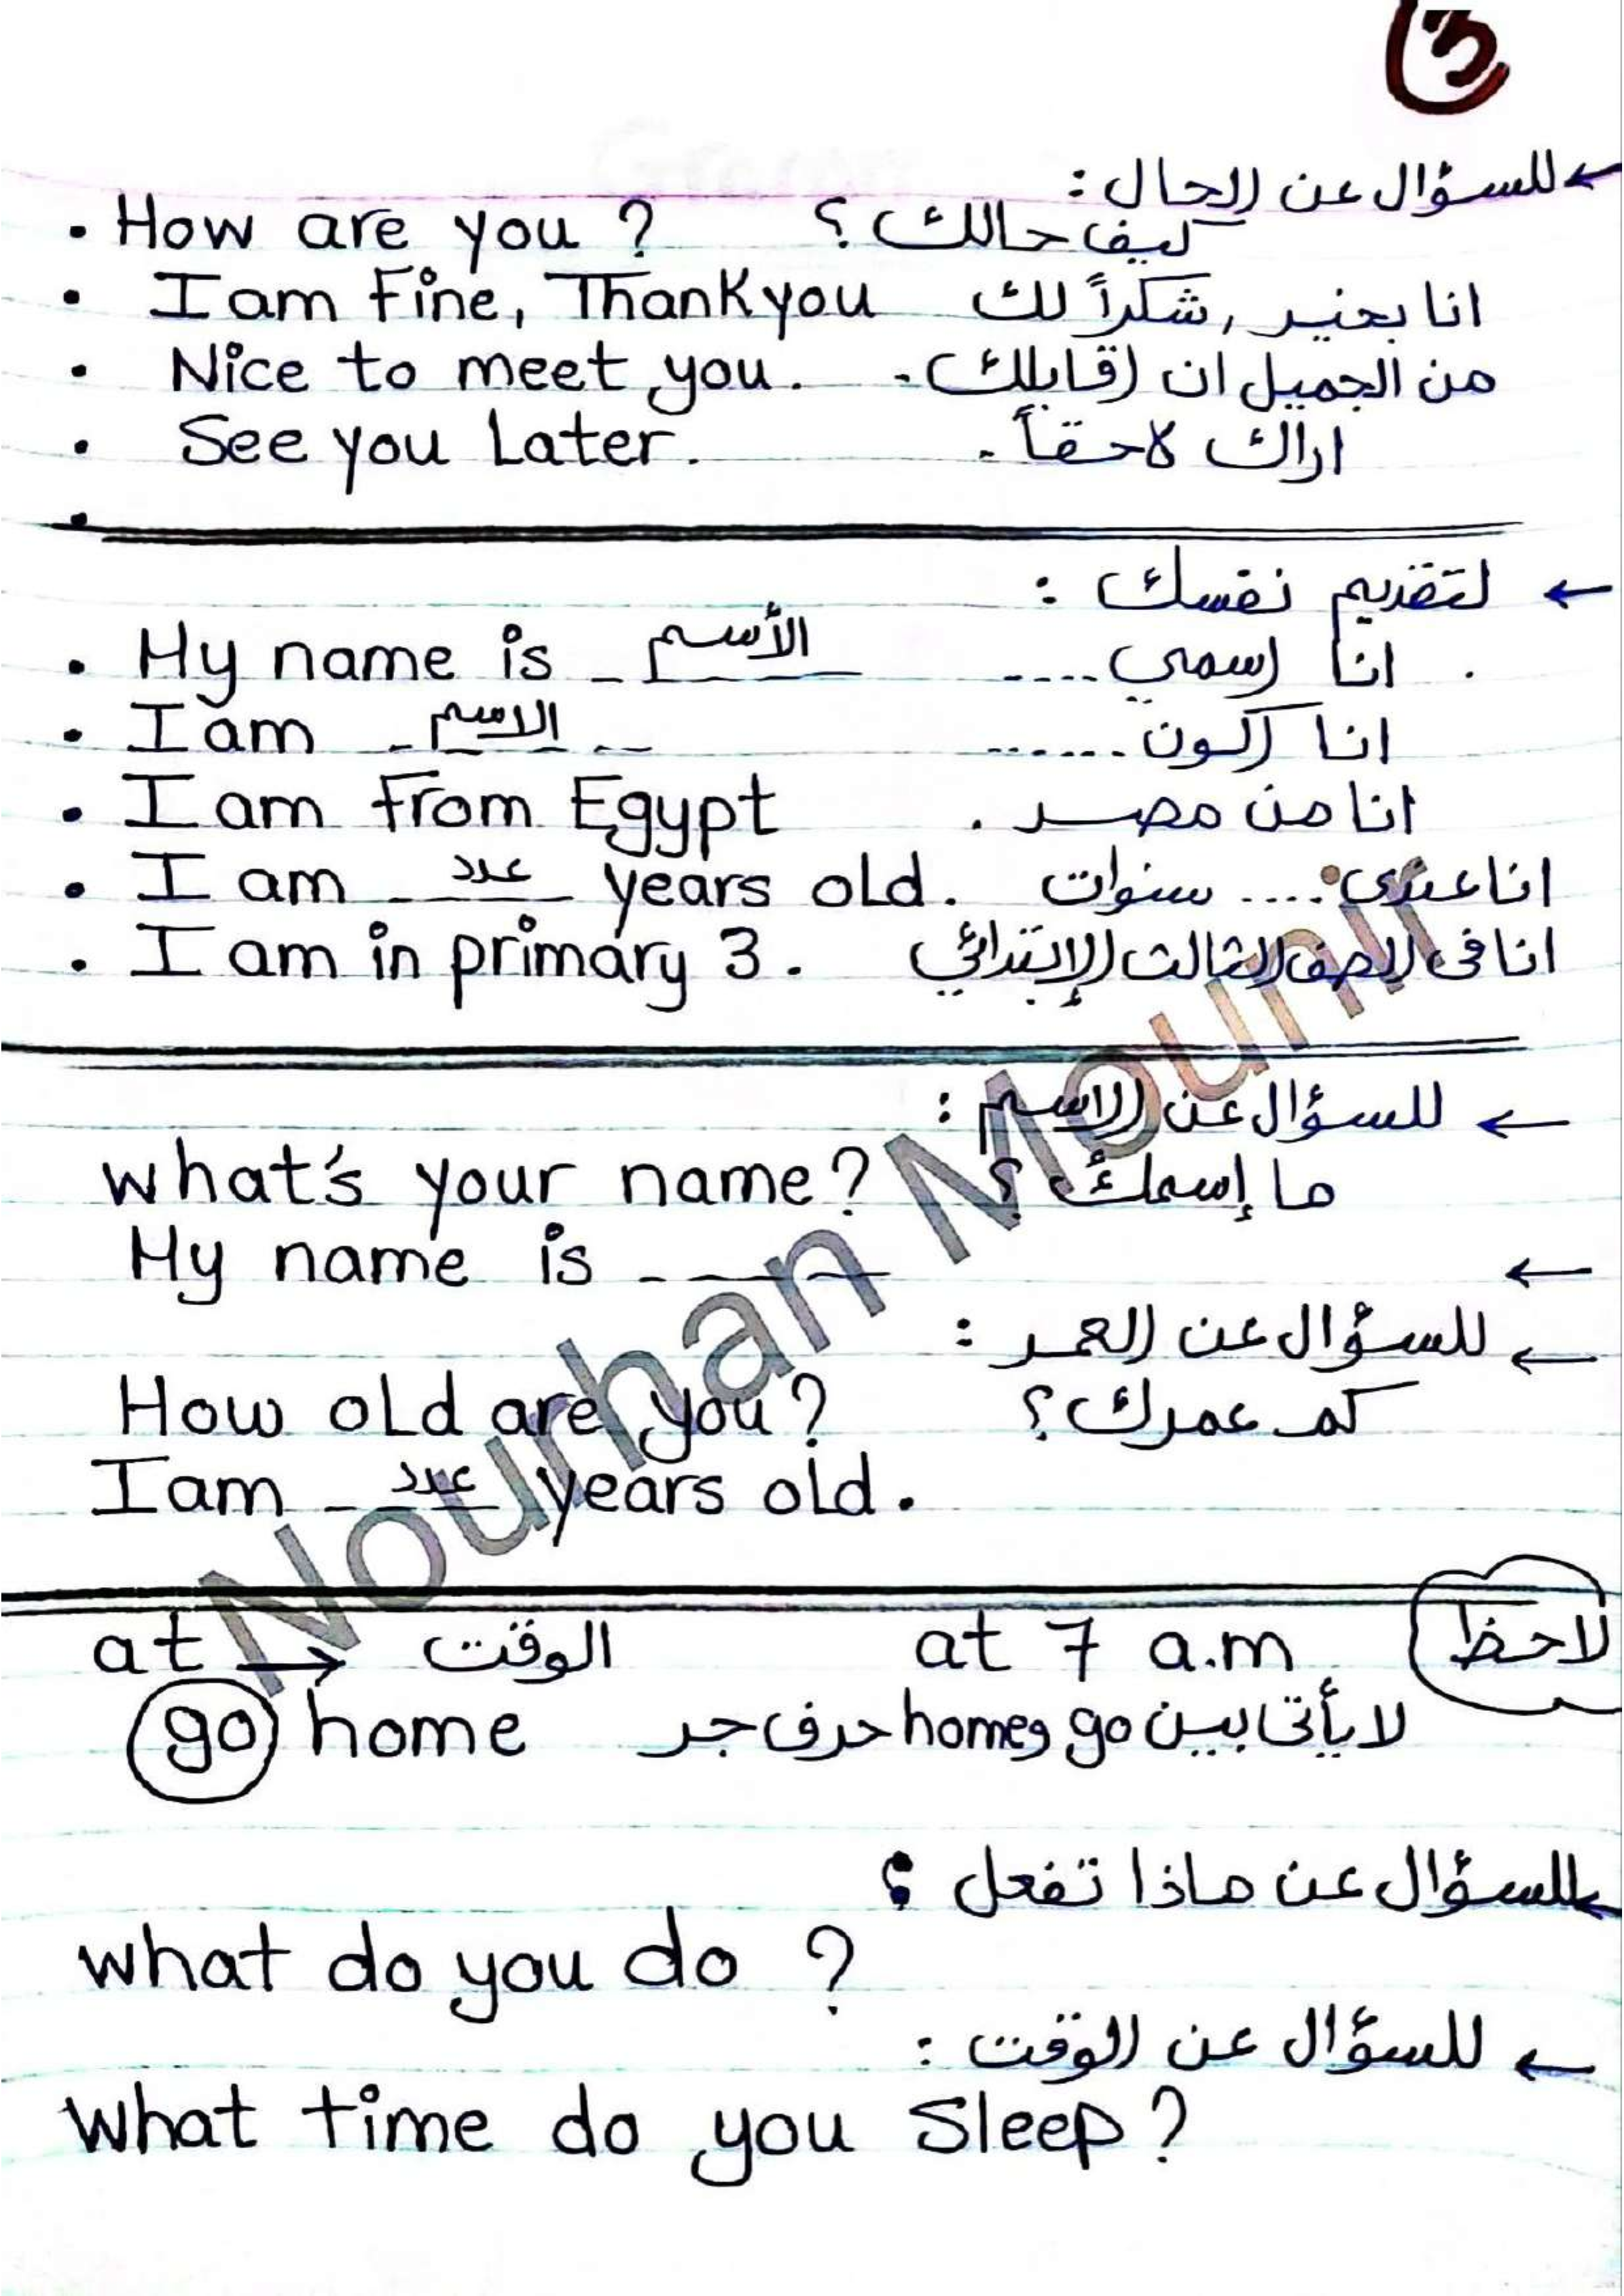 3
← للسؤال عن الحال :
• How are you ? كيف حالك ؟
• I am Fine, Thank you انا بخير , شكراً لك
• Nice to meet you. من الجميل ان اقابلك .
• See you Later. اراك لاحقاً .
•
← لتقديم نفسك :
• My name is الأسم انا اسمي .....
• I am الاسم انا اكون ......
• I am From Egypt انا من مصر .
• I am عدد years old. انا عندى .... سنوات
• I am in primary 3. انا فى الصف الثالث الإبتدائي
← للسؤال عن الاسم :
what's your name? ما إسمك ؟
My name is ---- ←
← للسؤال عن العمر :
How old are you? كم عمرك ؟
I am عدد years old.
at → الوقت at 7 a.m لاحظ
go home لا يأتى بين go و home حرف جر
← للسؤال عن ماذا تفعل ؟
what do you do ?
← للسؤال عن الوقت :
what time do you Sleep?
Nourhan Mounir